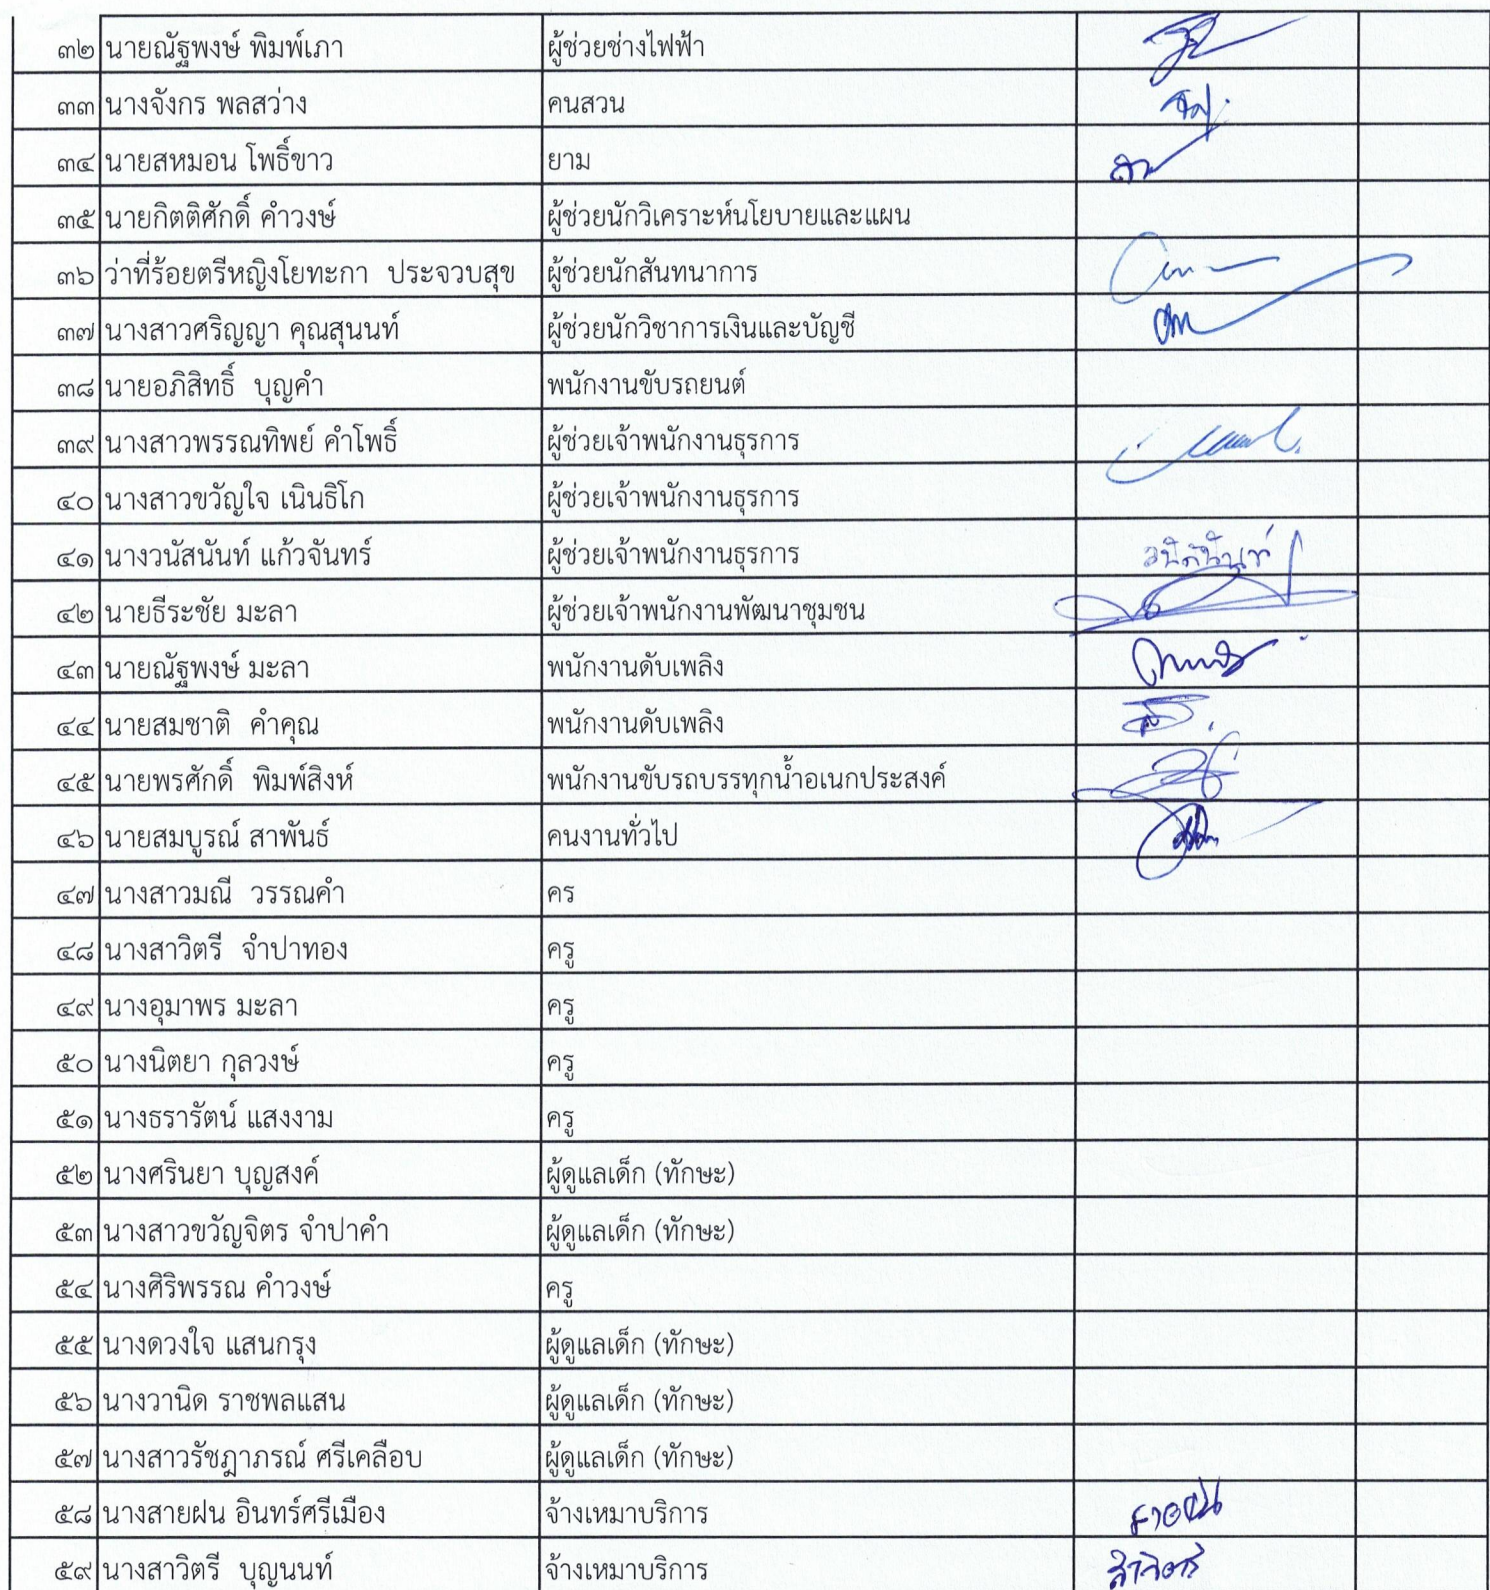 ๓๒ นายณัฐพงษ์ พิมพ์เภา ผู้ช่วยช่างไฟฟ้า
๓๓ นางจังกร พลสว่าง คนสวน
๓๔ นายสหมอน โพธิ์ขาว ยาม
๓๕ นายกิตติศักดิ์ คำวงษ์ ผู้ช่วยนักวิเคราะห์นโยบายและแผน
๓๖ ว่าที่ร้อยตรีหญิงโยทะกา ประจวบสุข ผู้ช่วยนักสันทนาการ
๓๗ นางสาวศริญญา คุณสุนนท์ ผู้ช่วยนักวิชาการเงินและบัญชี
๓๘ นายอภิสิทธิ์ บุญคำ พนักงานขับรถยนต์
๓๙ นางสาวพรรณทิพย์ คำโพธิ์ ผู้ช่วยเจ้าพนักงานธุรการ
๔๐ นางสาวขวัญใจ เนินธิโก ผู้ช่วยเจ้าพนักงานธุรการ
๔๑ นางวนัสนันท์ แก้วจันทร์ ผู้ช่วยเจ้าพนักงานธุรการ
๔๒ นายธีระชัย มะลา ผู้ช่วยเจ้าพนักงานพัฒนาชุมชน
๔๓ นายณัฐพงษ์ มะลา พนักงานดับเพลิง
๔๔ นายสมชาติ คำคุณ พนักงานดับเพลิง
๔๕ นายพรศักดิ์ พิมพ์สิงห์ พนักงานขับรถบรรทุกน้ำอเนกประสงค์
๔๖ นายสมบูรณ์ สาพันธ์ คนงานทั่วไป
๔๗ นางสาวมณี วรรณคำ คร
๔๘ นางสาวิตรี จำปาทอง ครู
๔๙ นางอุมาพร มะลา ครู
๕๐ นางนิตยา กุลวงษ์ ครู
๕๑ นางธรารัตน์ แสงงาม ครู
๕๒ นางศรินยา บุญสงค์ ผู้ดูแลเด็ก (ทักษะ)
๕๓ นางสาวขวัญจิตร จำปาคำ ผู้ดูแลเด็ก (ทักษะ)
๕๔ นางศิริพรรณ คำวงษ์ ครู
๕๕ นางดวงใจ แสนกรุง ผู้ดูแลเด็ก (ทักษะ)
๕๖ นางวานิด ราชพลแสน ผู้ดูแลเด็ก (ทักษะ)
๕๗ นางสาวรัชฎาภรณ์ ศรีเคลือบ ผู้ดูแลเด็ก (ทักษะ)
๕๘ นางสายฝน อินทร์ศรีเมือง จ้างเหมาบริการ สายฝน
๕๙ นางสาวิตรี บุญนนท์ จ้างเหมาบริการ สาวิตรี